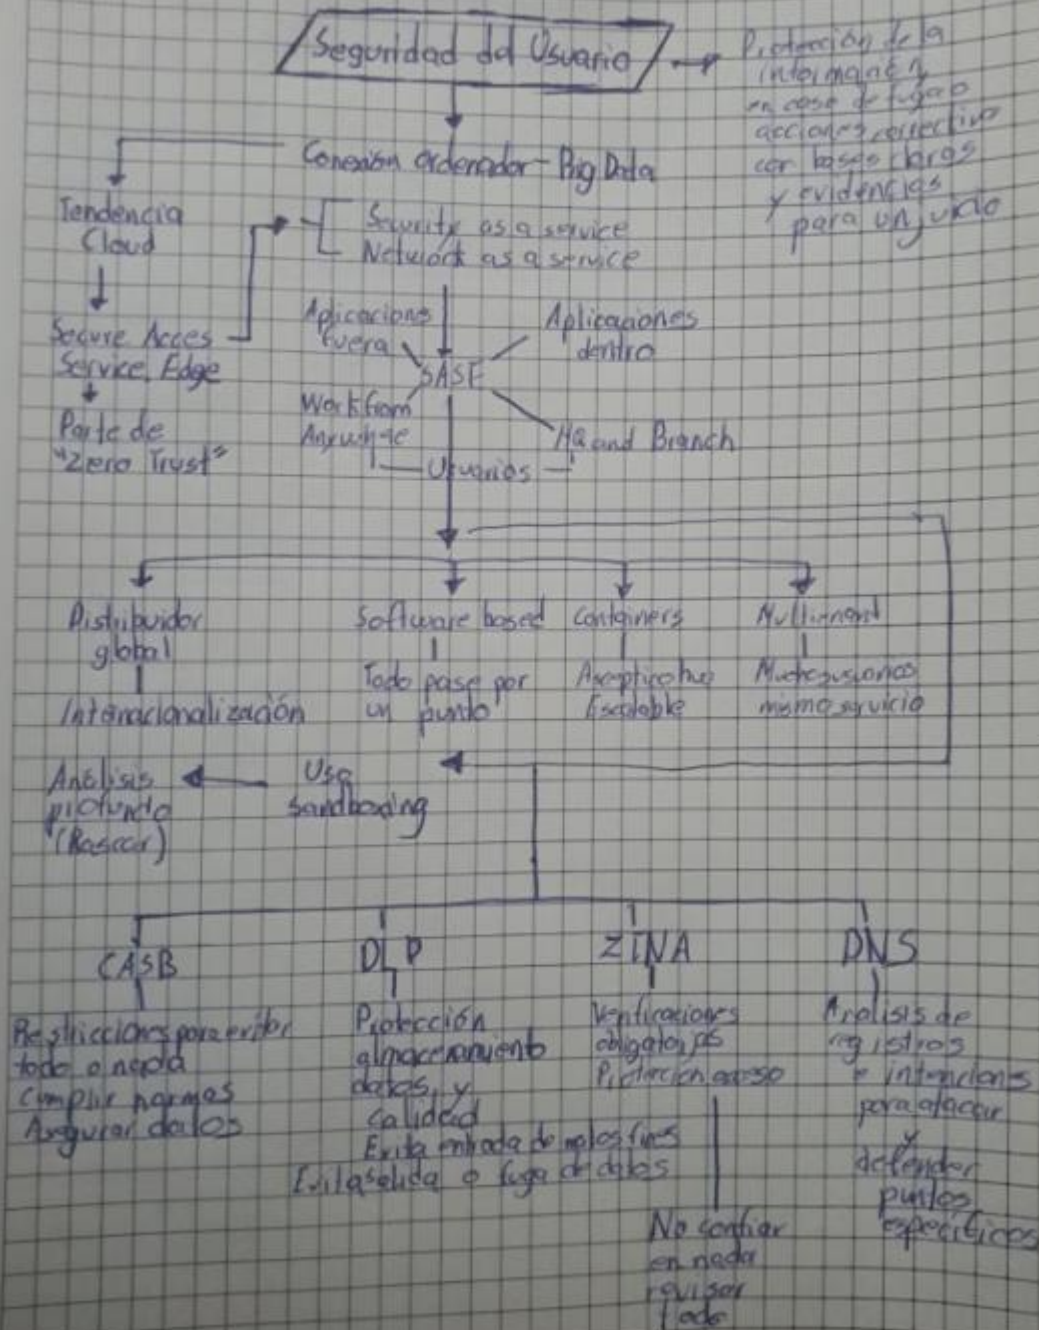 Seguridad del Usuario
Protección de la
información
en caso de fuga o
acciones correctivo
con bases claras
y evidencias
para un juicio
Conexión ordenador - Big Data
Tendencia
Cloud
Security as a service
Network as a service
Secure Acces
Service Edge
Parte de
"Zero Trust"
Aplicaciones
fuera
Aplicaciones
dentro
SASE
Work from
HQ and Branch
Usuarios
Distribuidor
global
Internacionalización
Software based
Todo pase por
un punto
Containers
Escalable
mismo servicio
Uso
sandboxing
Análisis
profundo
(Rascar)
CASB
Restricciones para evitar
todo o nada
Cumplir normas
Asegurar datos
DLP
Protección
almacenamiento
datos, y
calidad
Evita entrada de malos fines
Evita salida o fuga de datos
ZTNA
Verificaciones
obligatorias
Protección acceso
No confiar
en nada
revisar
todo
DNS
Análisis de
registros
e intenciones
para atacar
y
defender
puntos
específicos